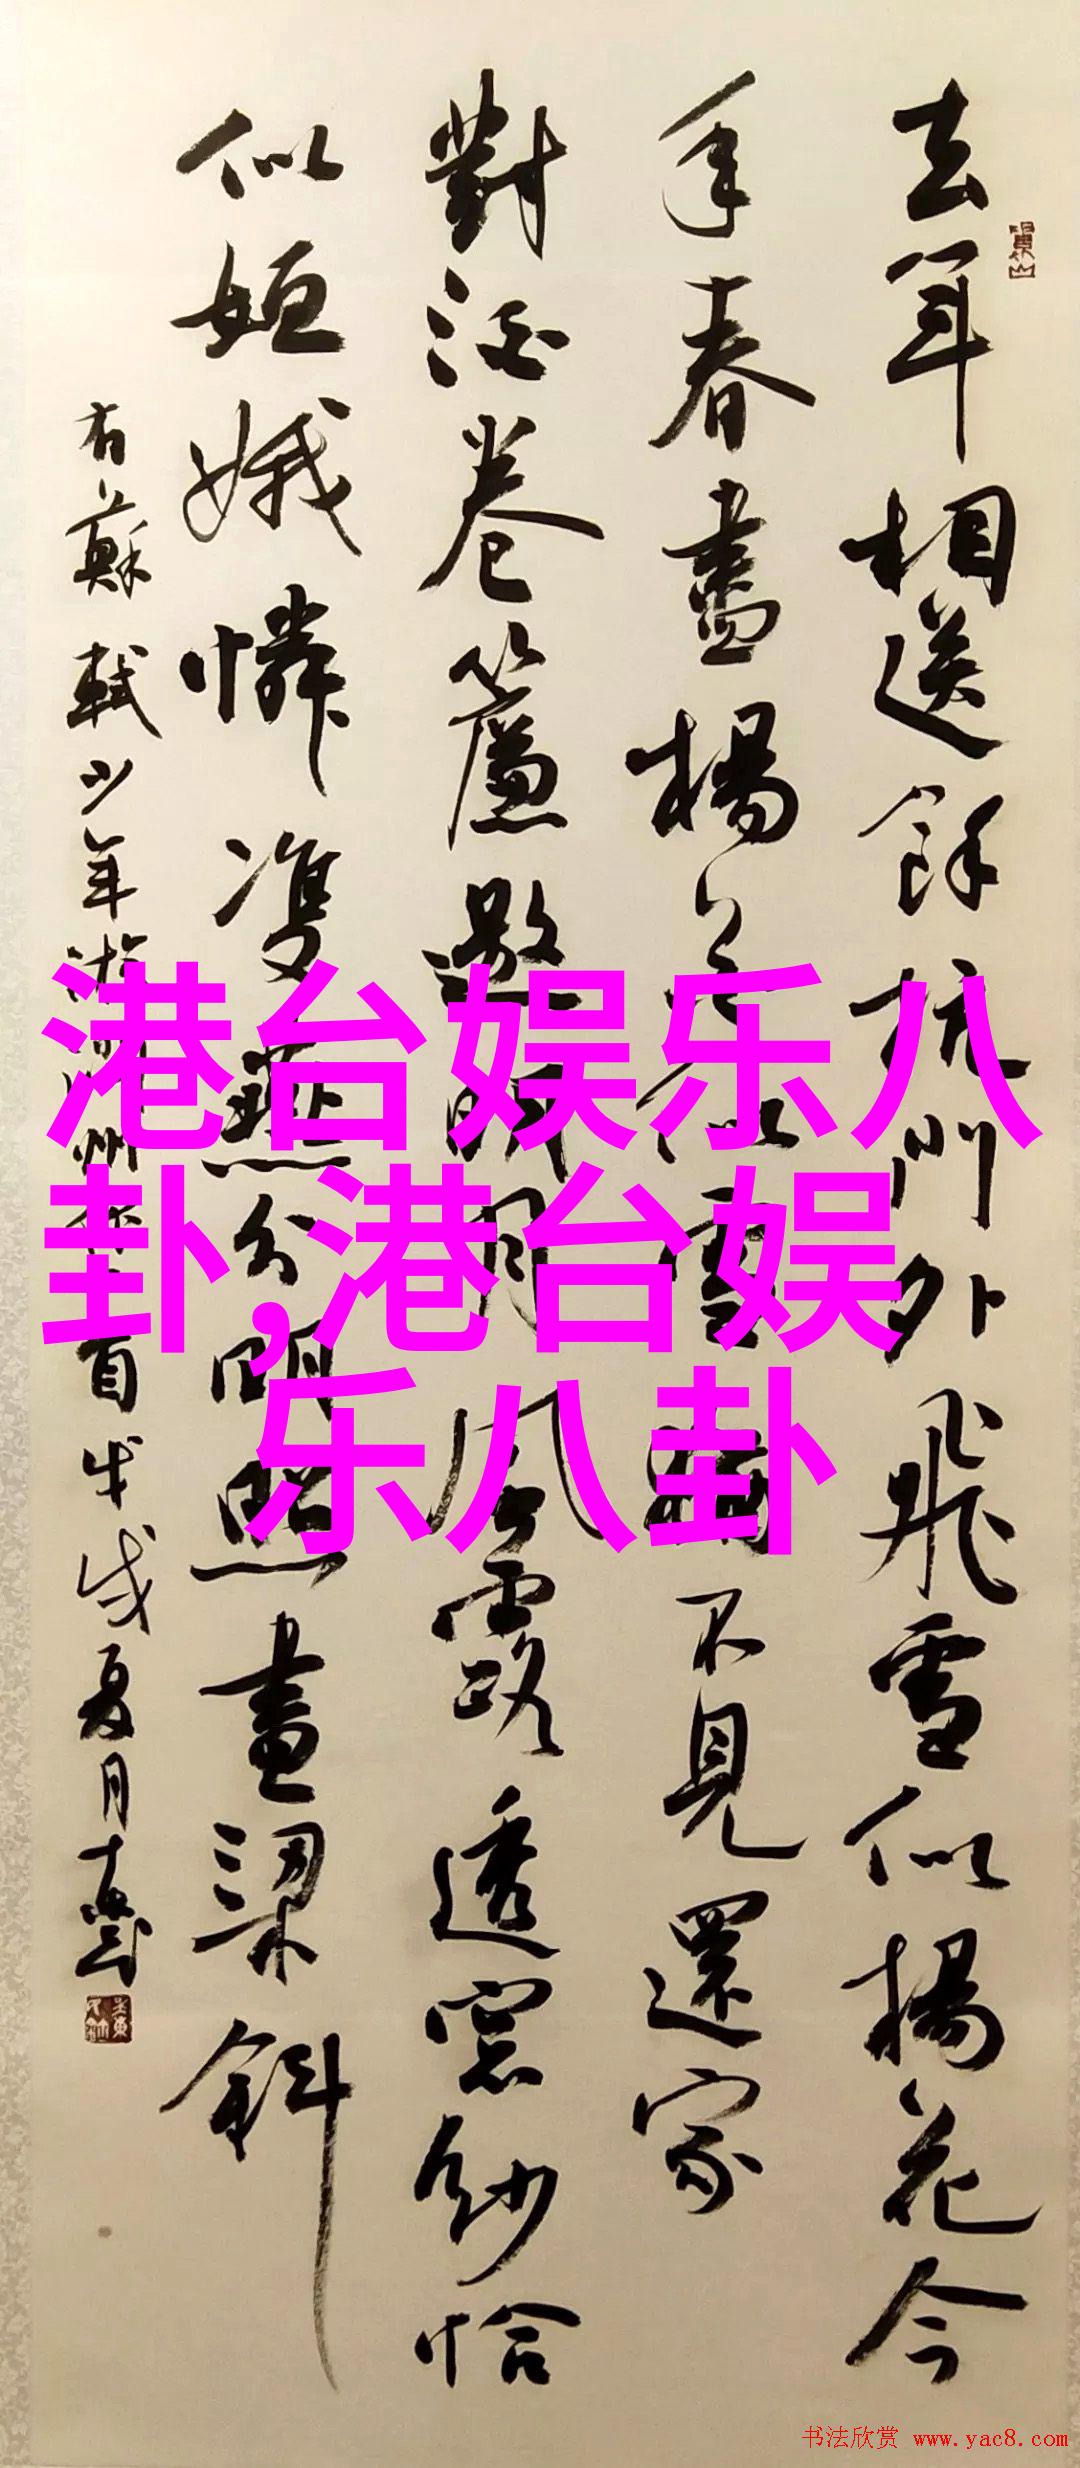 去年相送餘杭門外飛雪似楊花今
年春盡楊花似雪猶不見還家
對酒卷簾邀明月風露透窓紗恰
似姮娥憐雙燕分明照畫梁斜
右蘇軾少年游潤州作一首戊戌夏月
港台娱乐八
卦,港台娱
乐八卦
书法欣赏 www.yac8.com